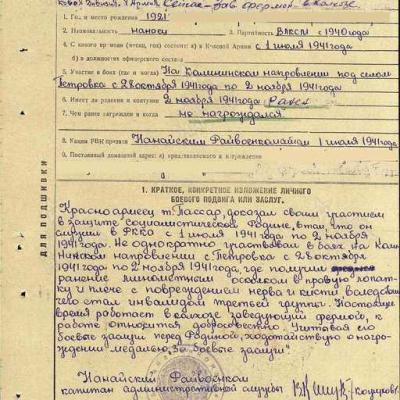 Сейчас-зав фермой в колхозе
1. Год. и место рождения 1921
2. Национальность нанаец 3. Партийность ВЛКСМ с 1940 года
4. С какого времени состоит в Красной Армии с 1 июля 1941 года
5. Участие в боях (где и когда) На Калининском направлении под селом
Петровка с 28 октября 1941 года по 2 ноября 1941 года
6. Имеет ли ранения и контузии 2 ноября 1941 года
7. Чем ранее награжден и когда не награждался
8. Каким РВК призван Нанайским Райвоенкоматом 1 июля 1941 года
9. Постоянный домашний адрес:
ДЛЯ ПОДШИВКИ
1. КРАТКОЕ, КОНКРЕТНОЕ ИЗЛОЖЕНИЕ ЛИЧНОГО
БОЕВОГО ПОДВИГА ИЛИ ЗАСЛУГ.
Красноармеец т. Пассар, доказал своим участием
в защите социалистической Родине, в том, что он
служил в РККА с 1 июля 1941 года по 2 ноября
1941 года. Не однократно участвовал в боях на Кали-
нинском направлении с. Петровка с 28 октября
1941 года по 2 ноября 1941 года, где получил
ранение минометным осколком в правую лопат-
ку и плече с повреждением нерва и кисти вследствие
чего стал инвалидом третьей группы. Настоящее
время работает в колхозе заведующий фермой, к
работе относится добросовестно. Учитывая его
боевые заслуги перед Родиной, ходатайствую о наг-
раждении медалью "За боевые заслуги".
Нанайский Райвоенком
капитан административной службы